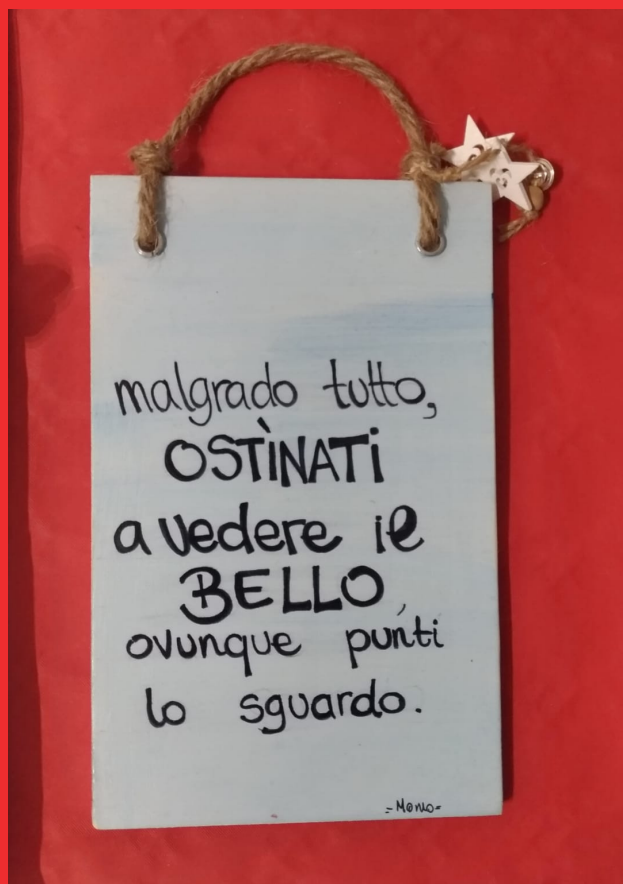 malgrado tutto,
OSTÌNATi
a vedere il
BELLO,
ovunque punti
lo sguardo.